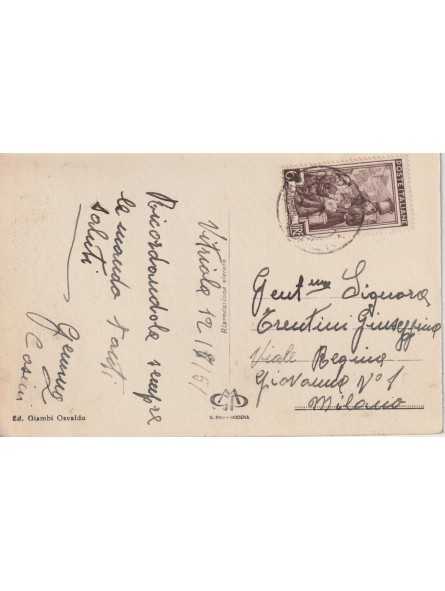 Vitriola 12/8/51
Ricordandola sempre
le mando tanti
saluti
Gemma
Casini
Ed. Giambi Osvaldo
RIPRODUZIONE VIETATA
MODENA
POSTE ITALIANE
Gent.ma Signora
Trentini Giuseppina
Viale Regina
Giovanna N° 1
Milano